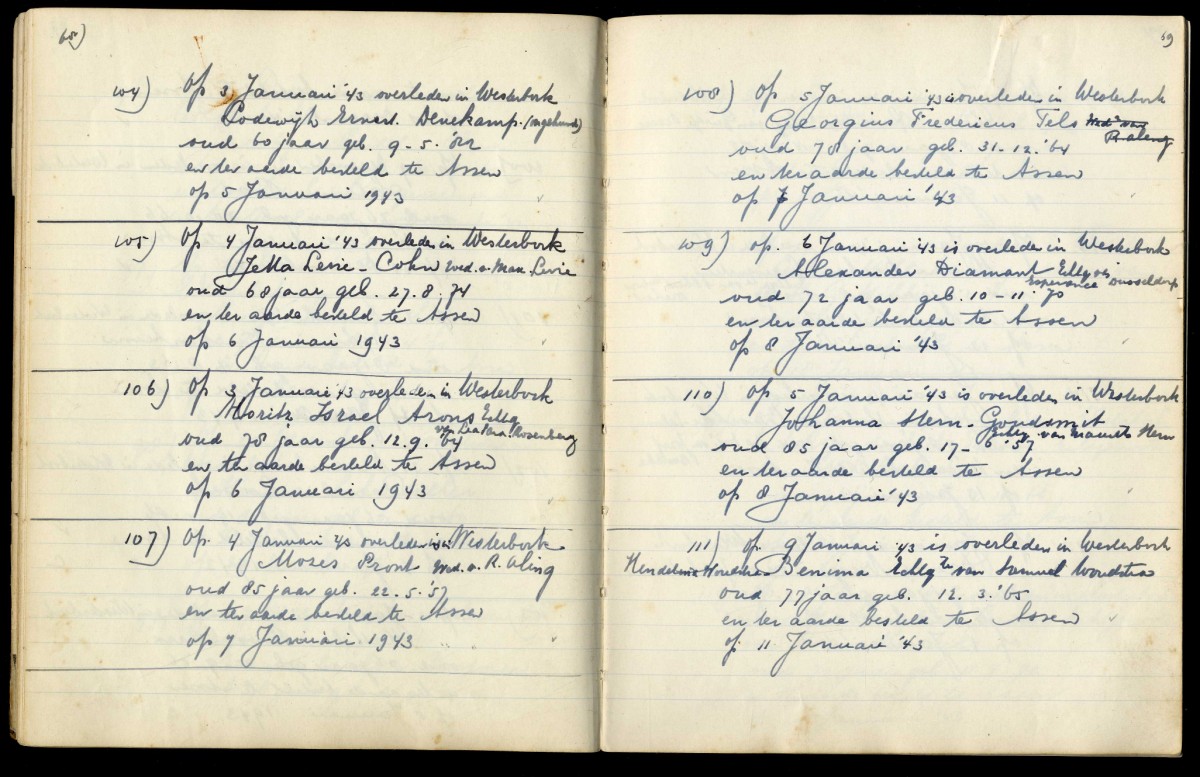 68)
104) Op 3 Januari '43 overleden in Westerbork
Lodewijk Ernest Denekamp. (ongehuwd)
oud 60 jaar geb. 9-5.'82
en ter aarde besteld te Assen
op 5 Januari 1943
105) Op 4 Januari '43 overleden in Westerbork
Jetta Levie - Cohn wed. v. Max. Levie
oud 68 jaar geb. 27.8.74
en ter aarde besteld te Assen
op 6 Januari 1943
106) Op 3 Januari '43 overleden in Westerbork
Moritz Israel Arons Echtg
van Rosenberg
oud 78 jaar geb. 12.9.'64
en ter aarde besteld te Assen
op 6 Januari 1943
107) Op. 4 Januari '43 overleden in Westerbork
Moses Pront Wed. v. R.
oud 85 jaar geb. 22.5.'57
en ter aarde besteld te Assen
op 7 Januari 1943
69
108) Op 5 Januari '43 is overleden in Westerbork
Georgius Fredericus Tels Wed. van
oud 78 jaar geb. 31-12.'64
en ter aarde besteld te Assen
op 7 Januari '43
109) op. 6 Januari '43 is overleden in Westerbork
Alexander Diamant Echtg v
Esperance Dusseldorp
oud 72 jaar geb. 10-11.'70
en ter aarde besteld te Assen
op 8 Januari '43
110) Op 5 Januari '43 is overleden in Westerbork
Johanna Stern - Goudsmit
Echtg. van Maurits Stern
oud 85 jaar geb. 17-6'57
en ter aarde besteld te Assen
op 8 Januari '43
111) op. 9 Januari '43 is overleden in Westerbork
Hendelina Benima Echtgte van Samuel Woudstra
oud 77 jaar geb. 12.3.'65
en ter aarde besteld te Assen
op. 11 Januari '43